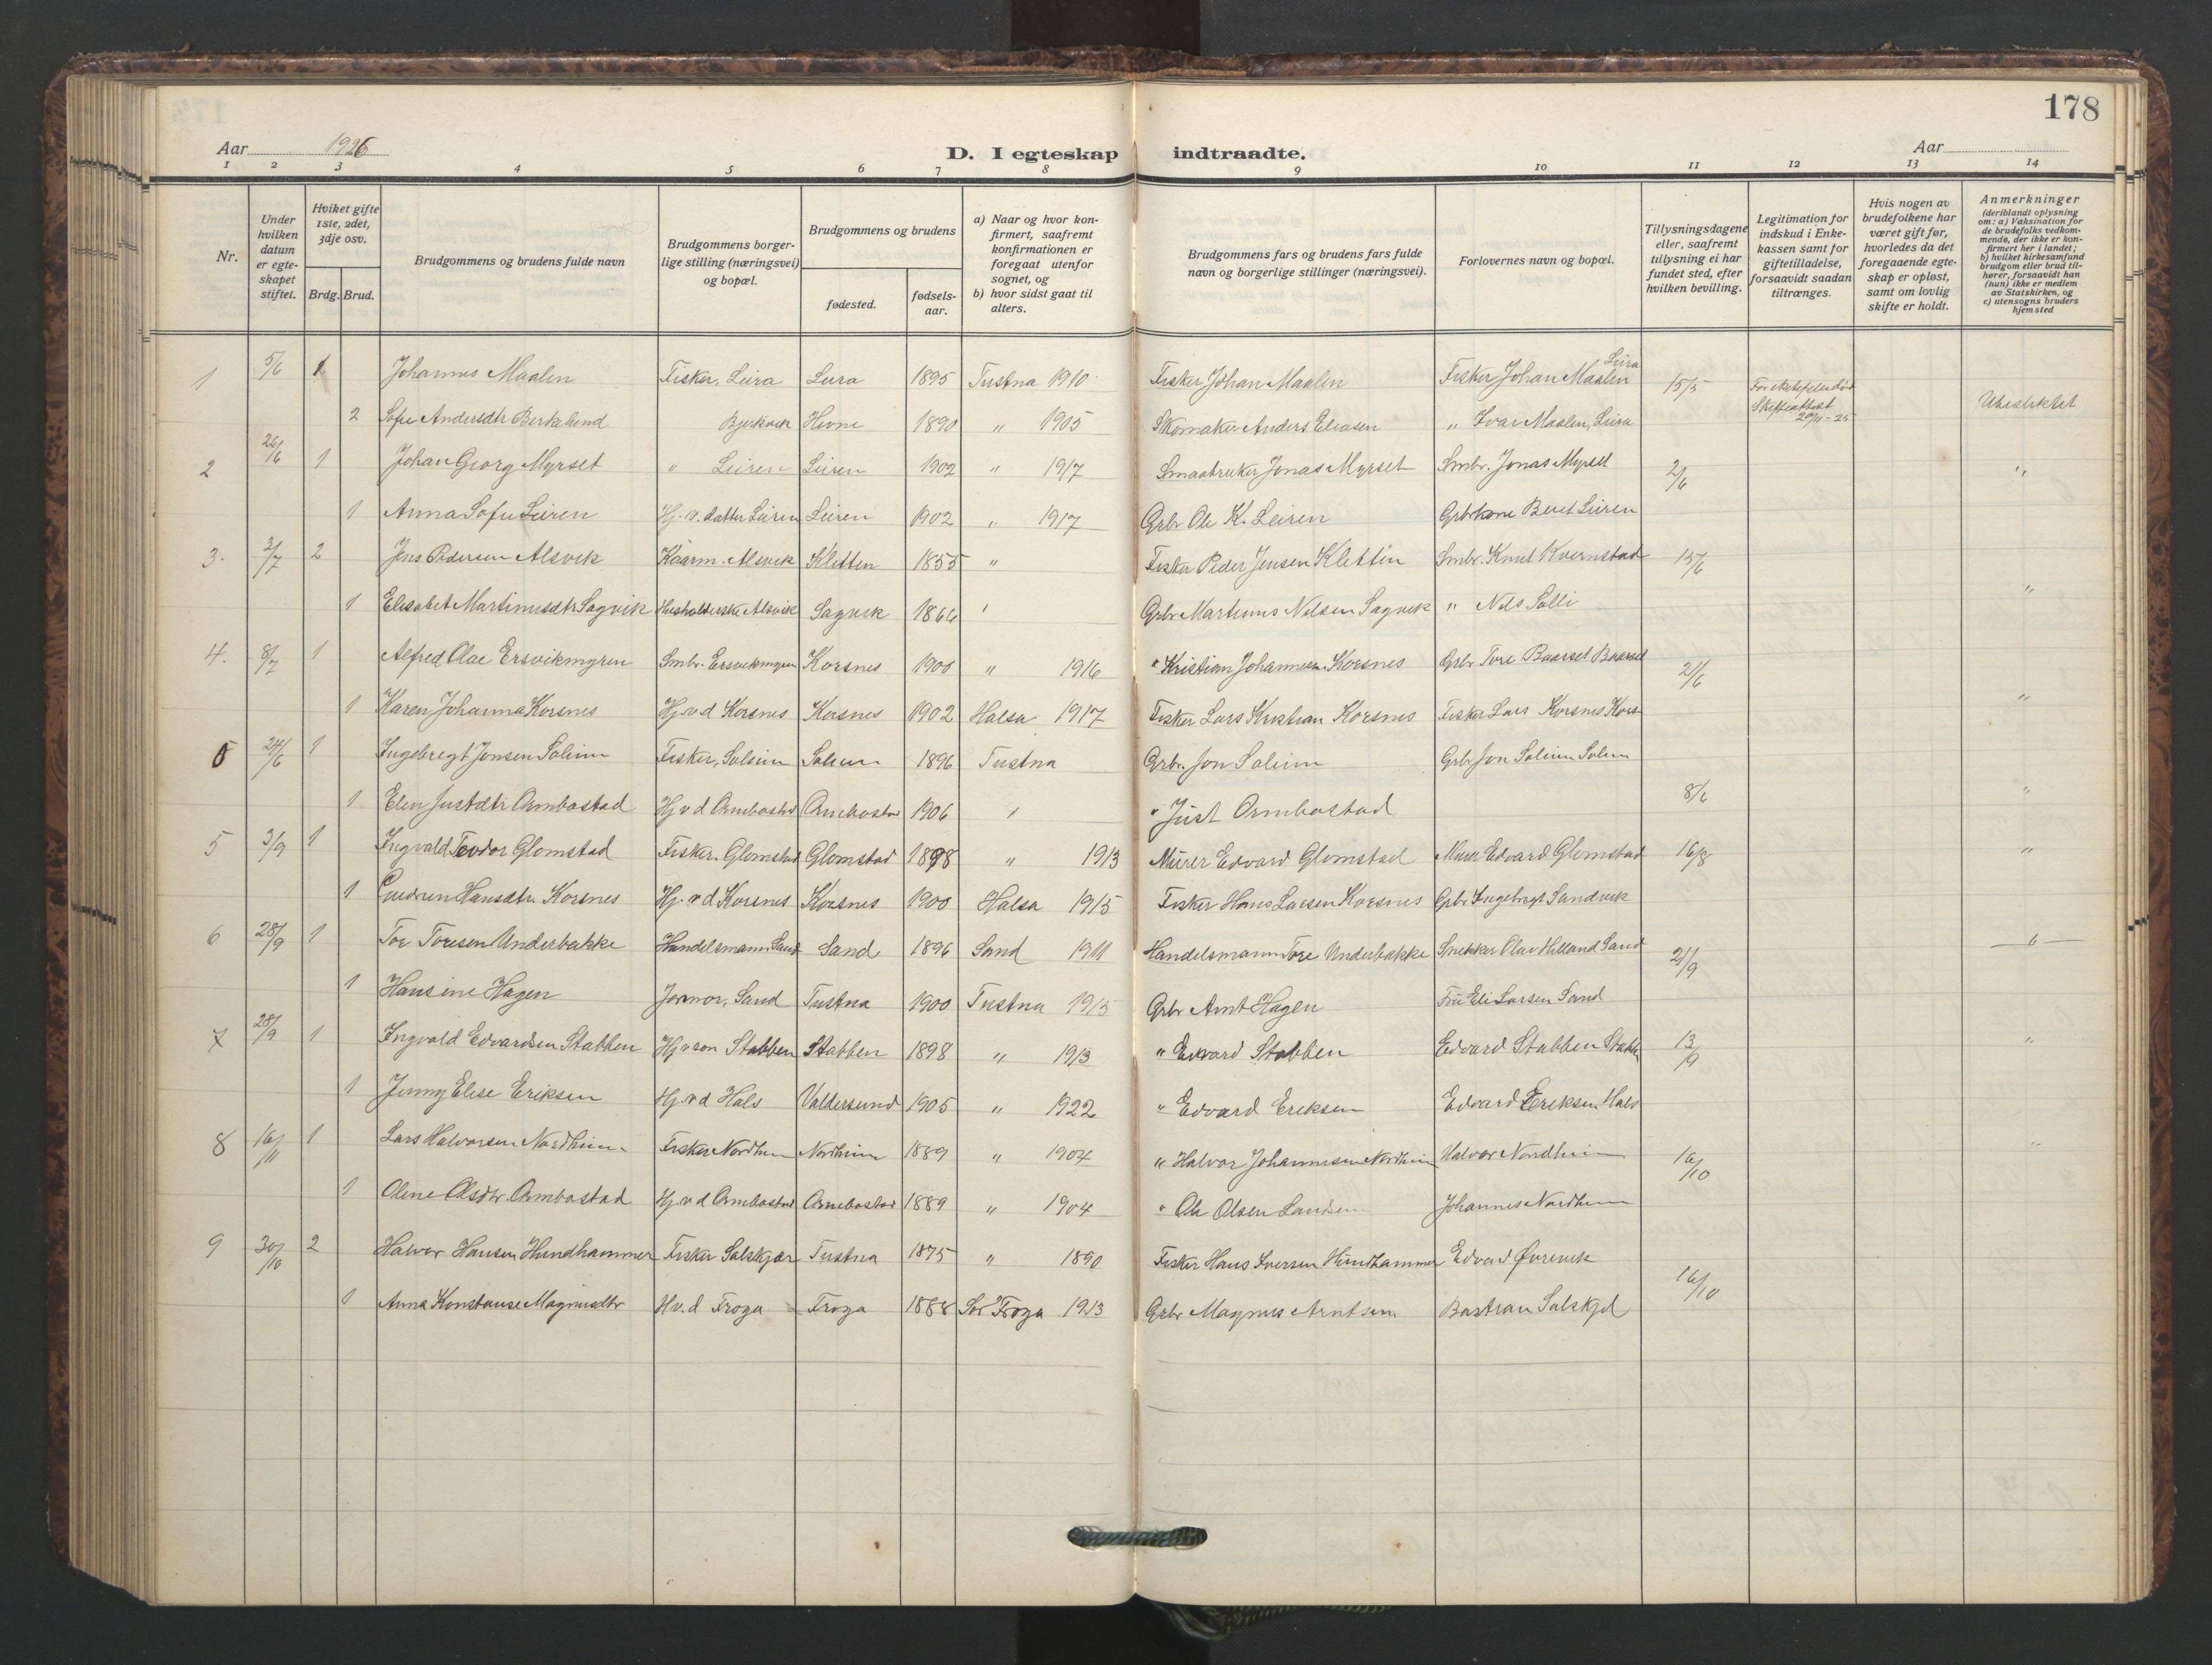 178
Aar 1926 D. I egteskap indtraadte. Aar
1 2 3 4 5 6 7 8 9 10 11 12 13 14
Nr.
Under hvilken datum er egteskapet stiftet.
Hvilket gifte 1ste, 2det, 3dje osv.
Brdg. Brud.
Brudgommens og brudens fulde navn
Brudgommens borgerlige stilling (næringsvei) og bopæl.
Brudgommens og brudens
fødested. fødselsaar.
a) Naar og hvor konfirmert, saafremt konfirmationen er foregaat utenfor sognet, og
b) hvor sidst gaat til alters.
Brudgommens fars og brudens fars fulde navn og borgerlige stillinger (næringsvei).
Forlovernes navn og bopæl.
Tillysningsdagene eller, saafremt tillysning ei har fundet sted, efter hvilken bevilling.
Legitimation for indskud i Enkekassen samt for giftetilladelse, forsaavidt saadan tiltrænges.
Hvis nogen av brudefolkene har været gift før, hvorledes da det foregaaende egteskap er opløst, samt om lovlig skifte er holdt.
Anmerkninger (deriblandt oplysning om: a) Vaksination for de brudefolks vedkommende, der ikke er konfirmert her i landet; b) hvilket kirkesamfund brudgom eller brud tilhører, forsaavidt han (hun) ikke er medlem av Statskirken, og c) utensogns bruders hjemsted
1 5/6 1 Johannes Maalen Fisker, Leira Leira 1895 Tustna 1910 Fisker Johan Maalen Fisker Johan Maalen Leira 15/5
2 Sofie Andersdtr Berkelund Bjerkvik Hevne 1890 " 1905 Skomaker Anders Eliasen " Ivar Maalen, Leira Skifteattest 20/11-25 Ubeslektet
2 26/6 1 Johan Georg Myrset " Leiren Leiren 1902 " 1917 Smaabruker Jonas Myrset Smbr. Jonas Myrset 2/6 "
1 Anna Sofie Leiren Hj. v. datter Leiren Leiren 1902 " 1917 Grbr Ole K. Leiren Grbrkone Beret Leiren
3. 3/7 2 Jens Pedersen Alsvik Kaarm. Alsvik Kletten 1855 " Fisker Peder Jensen Kletten Smbr. Knut Kvernstad 15/6
1 Elisabet Martinusdtr Sagvik Husholderske Alsvik Sagvik 1866 " Grbr Martinus Nilsen Sagvik " Nils Solli "
4. 8/7 1 Alfred Olai Ersvikmyren Smbr. Ersvikmyren Korsnes 1900 " 1916 " Kristian Johannesen Korsnes Grbr Tore Baarset Baarset 21/6
1 Karen Johanna Korsnes Hj. v. d Korsnes Korsnes 1902 Halsa 1917 Fisker Lars Kristian Korsnes Fisker Lars Korsnes Kors "
5 24/6 1 Ingebregt Jonsen Soleim Fisker, Soleim Soleim 1896 Tustna Grbr. Jon Soleim Grbr Jon Soleim Soleim
1 Elen Justdtr Ormbostad Hj v d Ormbostad Ormbostad 1906 " " Just Ormbostad 8/6 "
5 3/9 1 Ingvald Teodor Glomstad Fisker. Glomstad Glomstad 1898 " 1913 Murer Edvard Glomstad Murer Edvard Glomstad 16/8 "
1 Gudrun Hansdtr. Korsnes Hj. v d Korsnes Korsnes 1900 Halsa 1915 Fisker Hans Larsen Korsnes Grbr Ingebregt Sandvik
6 28/9 1 Tor Toresen Underbakke Handelsmann Sand Sand 1896 Sand 1911 Handelsmann Tore Underbakke Snekker Olav Helland Sand 21/9 — " —
1 Hansine Hagen Jormor, Sand Tustna 1900 Tustna 1915 Grbr Arnt Hagen Fru Eli Larsen Sand
7 28/9 1 Ingvald Edvardsen Stabben Hj v son Stabben Stabben 1898 " 1913 " Edvard Stabben Edvard Stabben Stabben 13/9 "
1 Jenny Elise Eriksen Hj. v d Hals Valdersund 1905 " 1922 " Edvard Eriksen Edvard Eriksen Hals
8 16/11 1 Lars Halvorsen Nordheim Fisker Nordheim Nordheim 1889 " 1904 " Halvor Johannesen Nordheim Halvor Nordheim 16/10 "
1 Oline Olsdtr. Ormbostad Hj. v d Ormbostad Ormbostad 1889 " 1904 " Ole Olsen Johannes Nordheim
9 30/10 2 Halvor Hansen Hundhammer Fisker Salskjær Tustna 1875 " 1890 Fisker Hans Iversen Hundhammer Edvard Ørevik
1 Anna Konstanse Magnusdtr Hv. d Frøya Frøya 1888 Sør Frøya 1913 Grbr Magnus Arntsen Bastian Salskjel 16/10